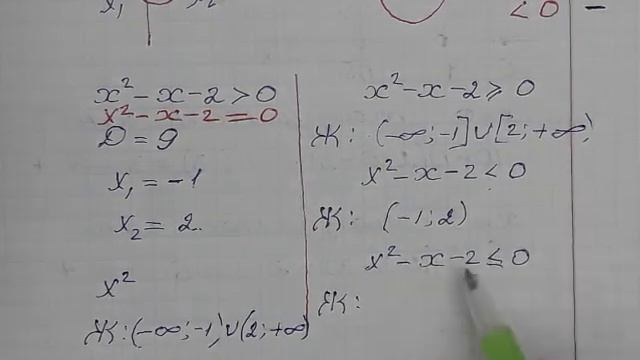 x₁
x₂
< 0 –
x² – x – 2 > 0
x² – x – 2 = 0
D = 9
x₁ = –1
x₂ = 2.
x²
Ж: (–∞; –1) ∪ (2; +∞)
x² – x – 2 ⩾ 0
Ж: (–∞; –1] ∪ [2; +∞)
x² – x – 2 < 0
Ж: (–1; 2)
x² – x – 2 ≤ 0
Ж: